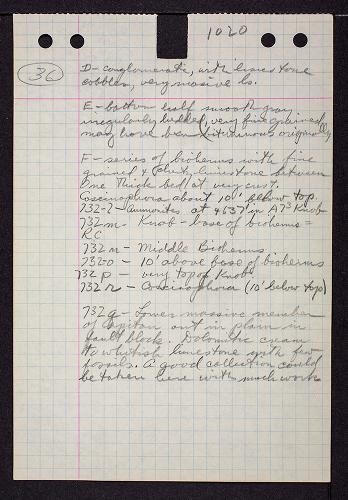 1020
36
D - conglomerate, with limestone
cobbles, very massive ls.
E - bottom half smooth gray,
irregularly bedded, very fine grained,
may have been bituminous originally
F - series of bioherms with fine
grained & cherty limestone between
One thick bed at very crest.
Coscinophora about 10' below top.
732-l - ammonites at 4637' in A73 Knob
732m - Knob - base of bioherms =
RC
732n - Middle Bioherms
732o - 10' above base of bioherms
732p - very top of Knob
732r - Coscinophora (10' below top)
732q - Lower massive member
of Capitan out in plain in
fault block. Dolomitic cream
to whitish limestone with few
fossils. A good collection could
be taken here with much work